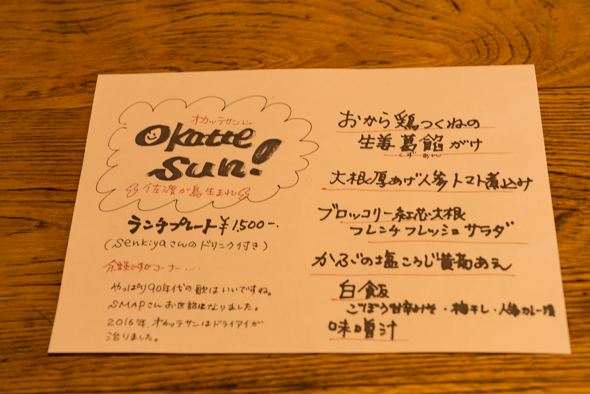 オカッテサンじゃ
Okatte
sun!
佐渡が島生まれ
ランチプレート ¥1500-.
(senkiyaさんのドリンク付き)
余談ですがコーナー...
やっぱり90年代の歌はいいですね。
SMAPさんお世話になりました。
2016年、オカッテサンはドライアイが
治りました。
おから鶏つくねの
生姜葛餡がけ
くずあん
大根厚あげ人参トマト煮込み
ブロッコリー紅芯大根
フレンチフレッシュサラダ
かぶの塩こうじ黄菊あえ
白飯
ごぼう甘辛みそ・梅干し・人参カレー漬
味噌汁